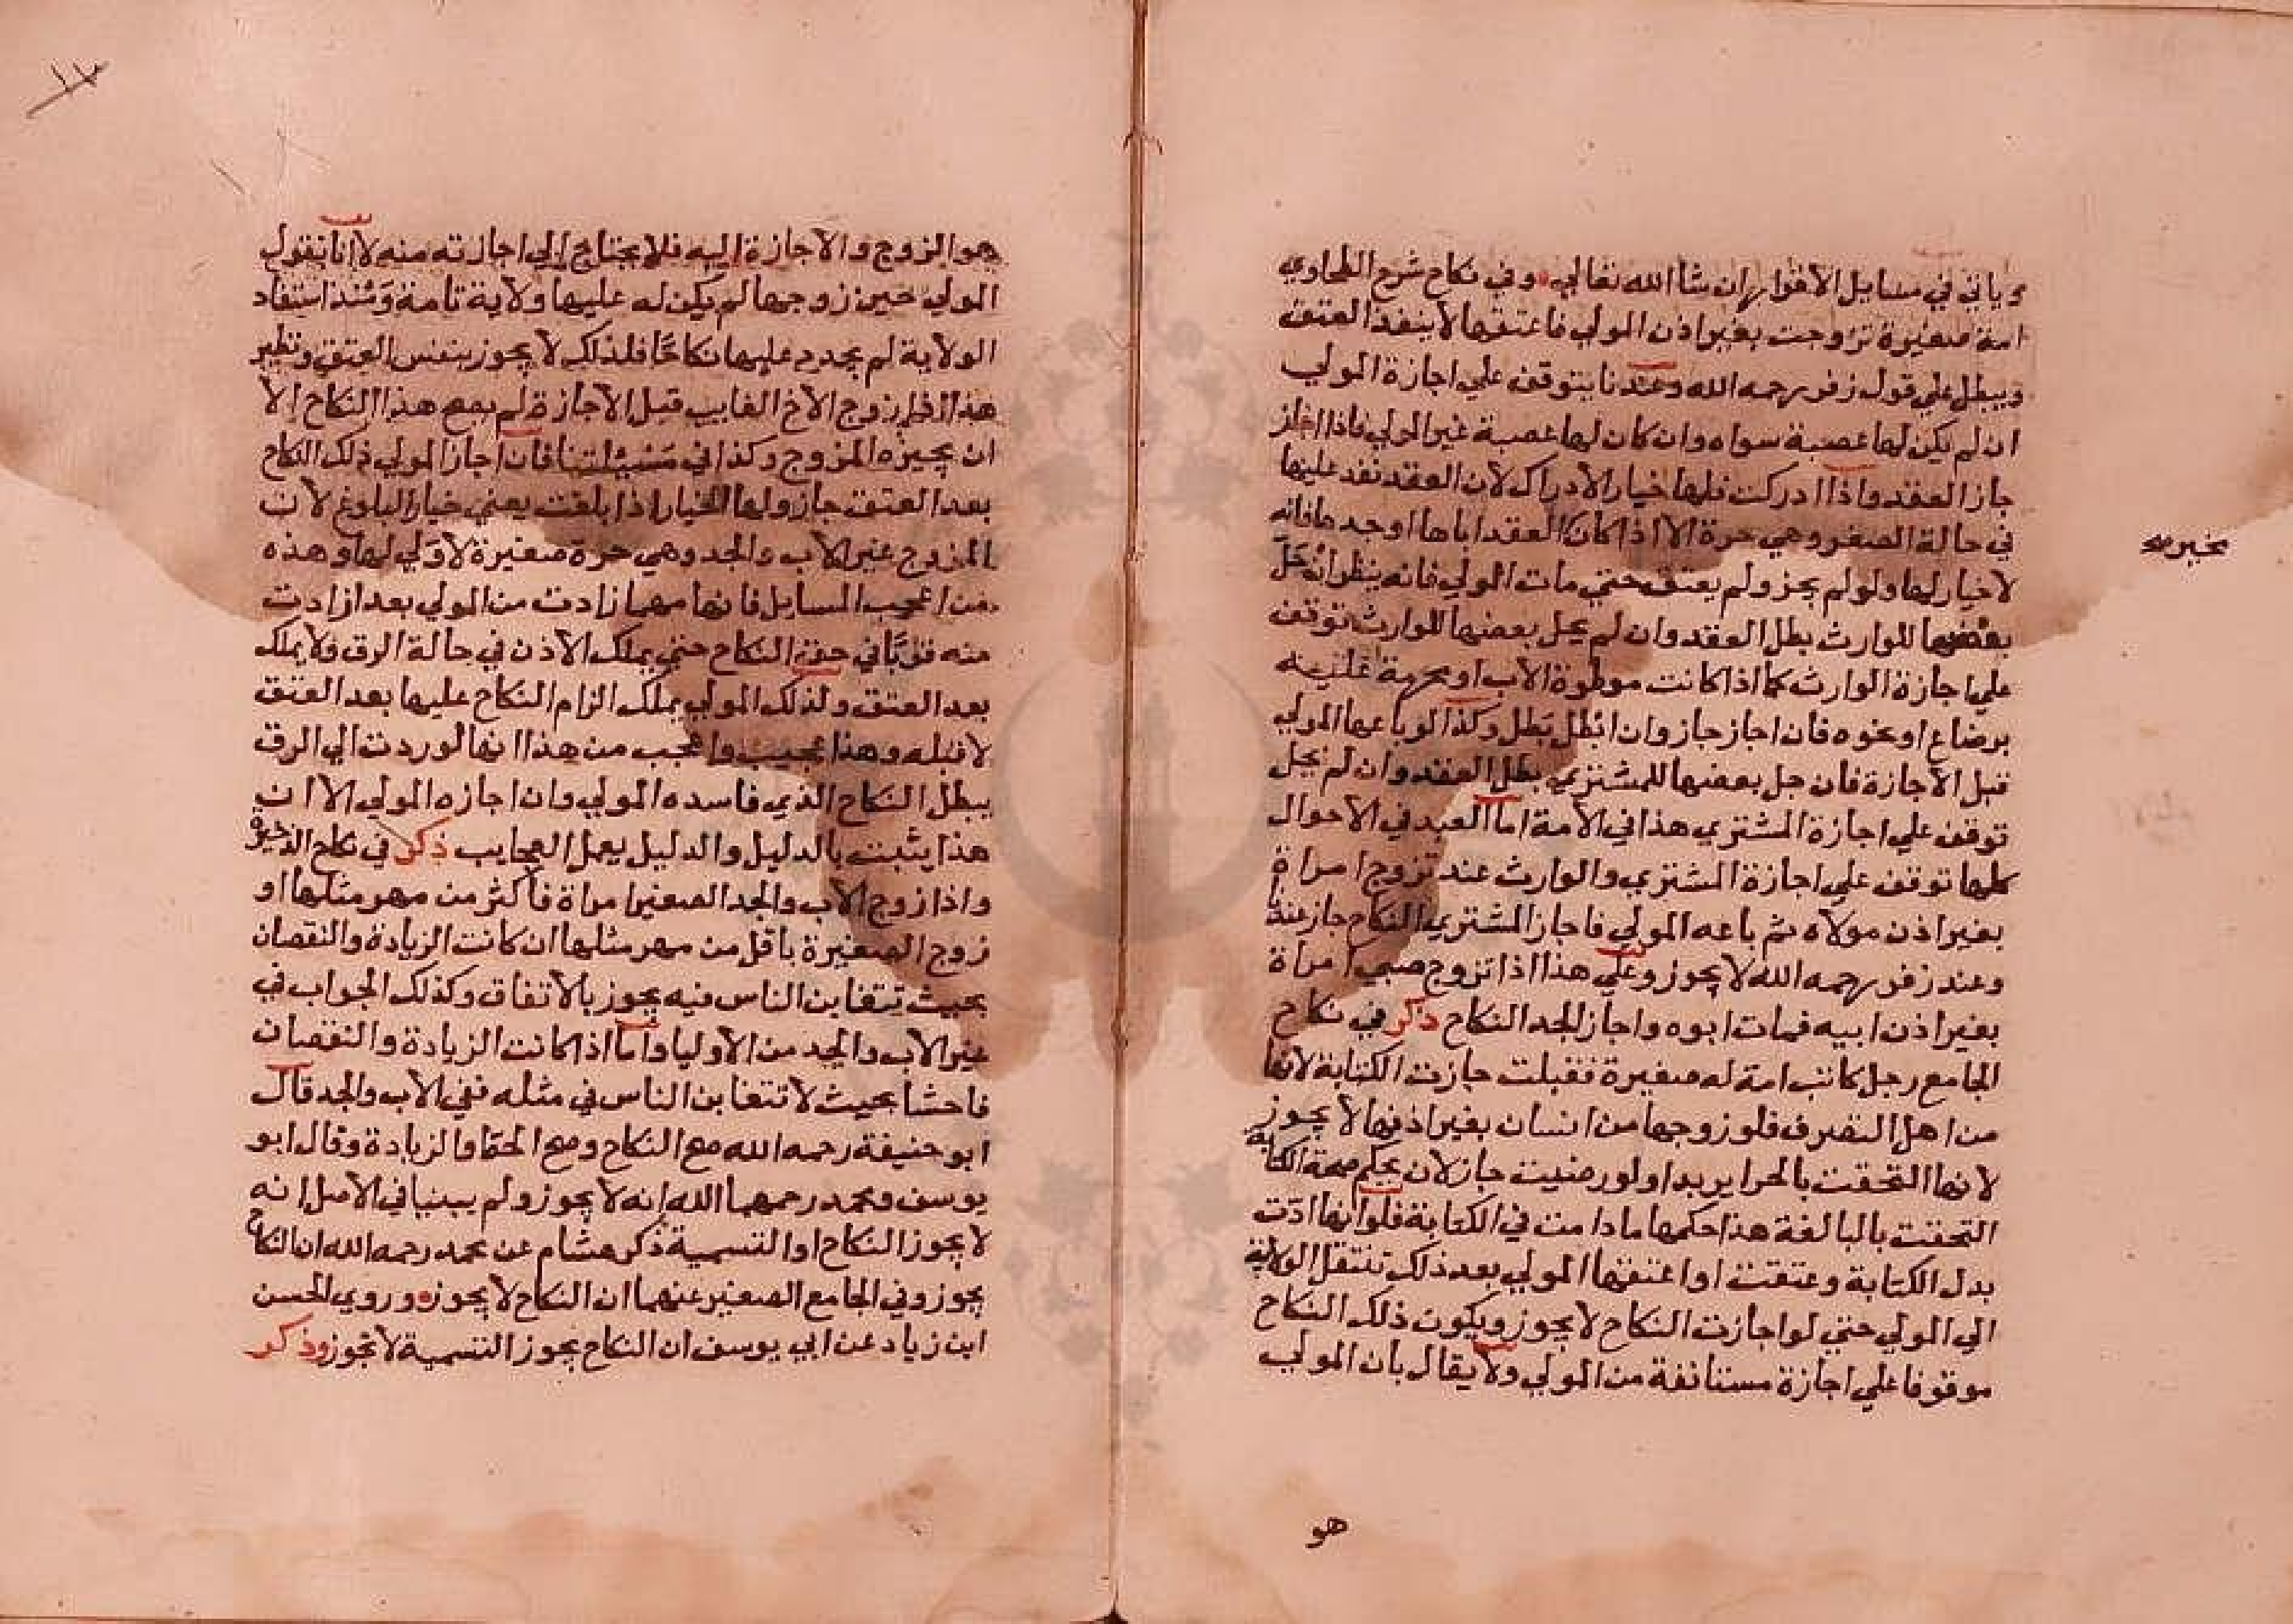 وياتي في مسايل الاقرار ان شا الله تعالي وفي نكاح شرح الطحاوي
امة صغيرة تزوجت بغير اذن المولي فاعتقها لا ينفذ العتق
ويبطل علي قول زفر رحمه الله وعندنا يتوقف علي اجازة المولي
ان لم يكن لها عصبة سواه وان كان لها عصبة غير المولي فاذا اجاز
جاز العقد واذا ادركت فلها خيار الادراك لان العقد نفد عليها
في حالة الصغر وهي حرة الا اذا كان العقد اباها او جدها فانه
لا خيار لها ولو لم يجز ولم يعتق حتي مات المولي فانه ينظر ان حل
بعضها للوارث بطل العقد وان لم يحل بعضها للوارث توقف
علي اجازة الوارث كما اذا كانت موطوة الاب او محرمة عليه
برضاع او نحوه فان اجاز جاز وان ابطل بطل وكذا لو باعها المولي
قبل الاجازة فان حل بعضها للمشتري بطل العقد وان لم يحل
توقف علي اجازة المشتري هذا في الامة اما العبد في الاحوال
كلها توقف علي اجازة المشتري والوارث عند تزوج امراة
بغير اذن مولاه ثم باعه المولي فاجاز المشتري النكاح جاز عندنا
وعند زفر رحمه الله لا يجوز وعلي هذا اذا تزوج صبي امراة
بغير اذن ابيه فمات ابوه واجاز الجد النكاح ذكر في نكاح
الجامع رجل كاتب امة له صغيرة فقبلت جازت الكتابة لانها
من اهل التصرف فلو زوجها من انسان بغير اذنها لا يجوز
لانها التحقت بالحراير يدا ولو رضيت جاز لان بحكم صحة الكتابة
التحقت بالبالغة هذا حكمها ما دامت في الكتابة فلو انها ادت
بدل الكتابة وعتقت او اعتقها المولي بعد ذلك تنتقل الولاية
الي المولي حتي لو اجازت النكاح لا يجوز ويكون ذلك النكاح
موقوفا علي اجازة مستانفة من المولي ولا يقال بان المولي
هو
هو الزوج والاجازة اليه فلا يحتاج الي اجازته منه لانا نقول
المولي حين زوجها لم يكن له عليها ولاية تامة ومنذ استفاد
الولاية لم يجدد عليها نكاحا فلذلك لا يجوز بنفس العتق ونظير
هذا اذا زوج الاخ الغايب قبل الاجازة لم يصح هذا النكاح الا
ان يجيزه المزوج وكذا في مسئلتنا فان اجاز المولي ذلك النكاح
بعد العتق جاز ولها الخيار اذا بلغت يعني خيار البلوغ لان
المزوج غير الاب والجد وهي حرة صغيرة لا ولي لها وهذه
من اعجب المسايل فانها مهما زادت من المولي بعد ازادت
منه قربا في حق النكاح حتي يملك الاذن في حالة الرق ولا يملك
بعد العتق ولذلك المولي يملك الزام النكاح عليها بعد العتق
لا قبله وهذا عجيب واعجب من هذا انها لو ردت الي الرق
يبطل النكاح الذي فاسده المولي وان اجازه المولي الا ان
هذا يثبت بالدليل والدليل يعمل العجايب ذكر في نكاح الذخيرة
واذا زوج الاب والجد الصغير امراة فاكثر من مهر مثلها او
زوج الصغيرة باقل من مهر مثلها ان كانت الزيادة والنقصان
بحيث تتغابن الناس فيه يجوز بالاتفاق وكذلك الجواب في
غير الاب والجد من الاوليا واما اذا كانت الزيادة والنقصان
فاحشا بحيث لا تتغابن الناس في مثله ففي الاب والجد قال
ابو حنيفة رحمه الله صح النكاح وصح الحط والزيادة وقال ابو
يوسف ومحمد رحمهما الله انه لا يجوز ولم يبينا في الاصل انه
لا يجوز النكاح او التسمية ذكر هشام عن محمد رحمه الله ان النكاح
يجوز وفي الجامع الصغير عنهما ان النكاح لا يجوز وروي الحسن
ابن زياد عن ابي يوسف ان النكاح يجوز التسمية لا تجوز وذكر